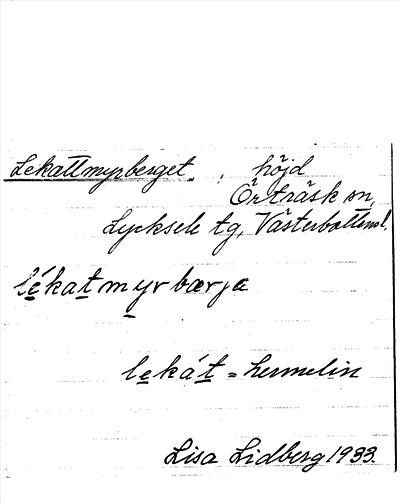 Lekattmyrberget, höjd
Örträsk sn,
Lycksele tg, Västerbottensl.
lékatmyrbærjɐ
lekát = hermelin
Lisa Lidberg 1933.